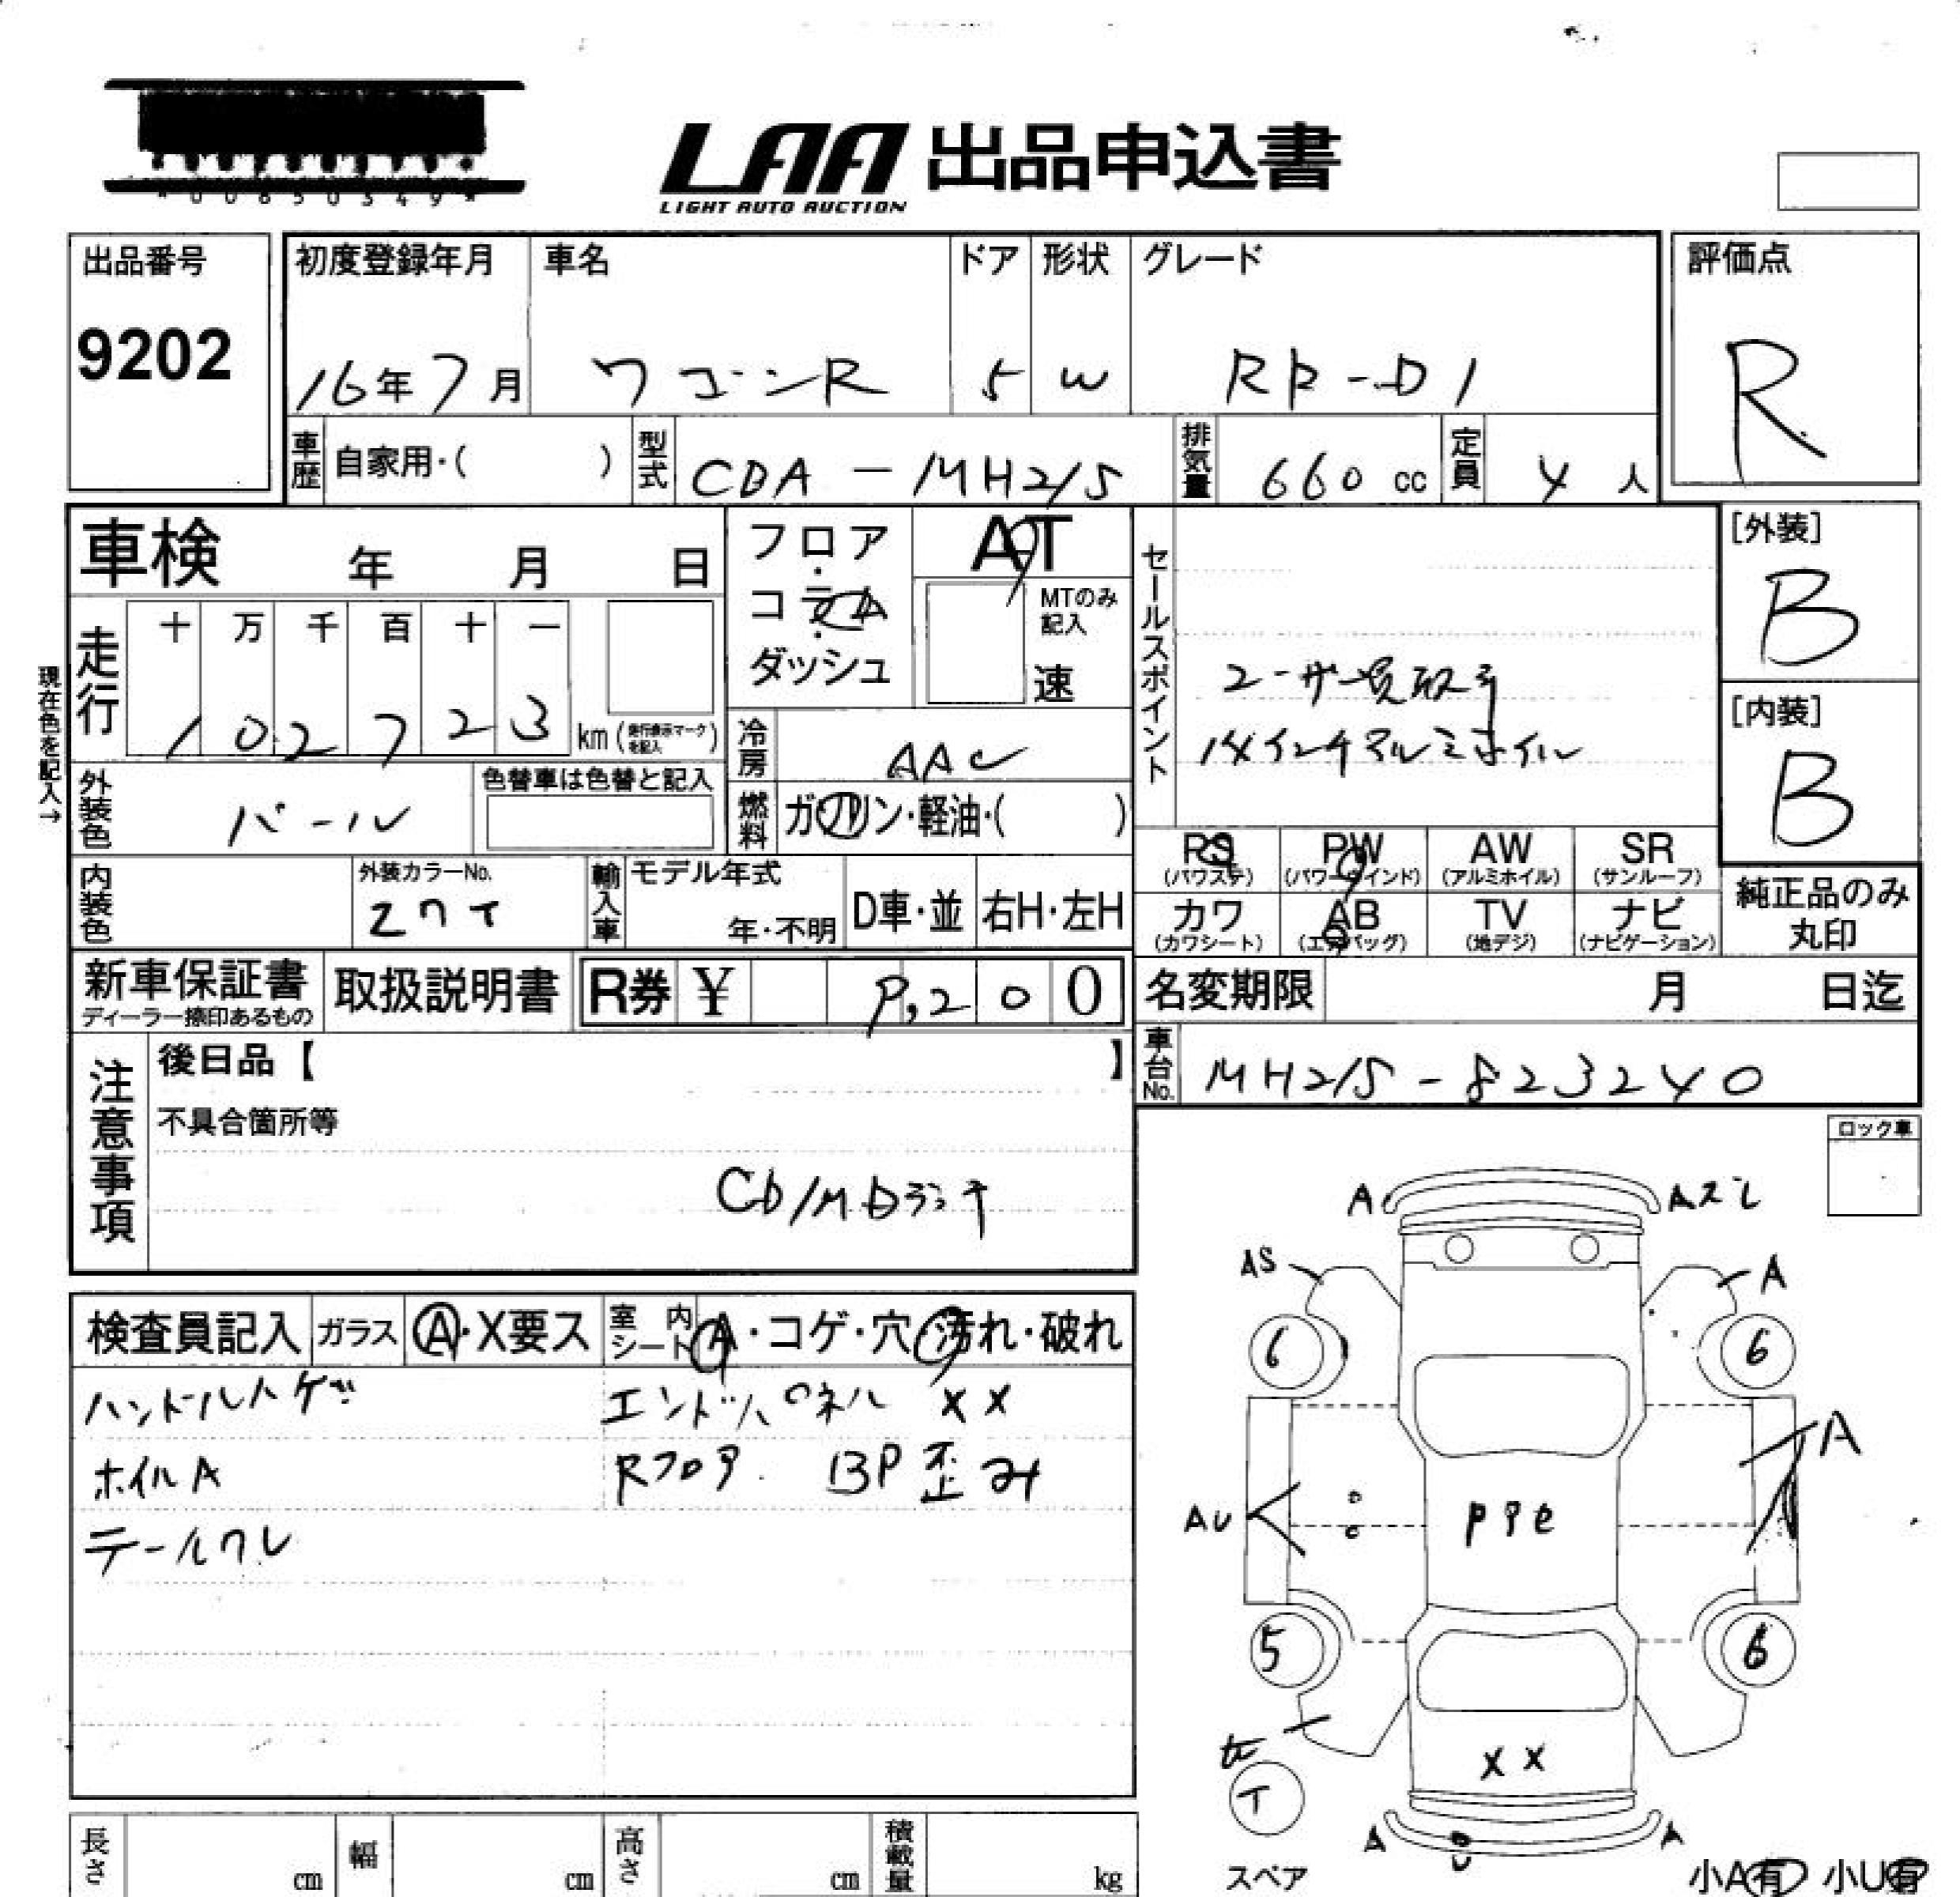 LAA 出品申込書
LIGHT AUTO AUCTION
*00650349*
出品番号
9202
初度登録年月 車名 ドア 形状 グレード
16年7月 ワゴンR 5 W RR-DI
評価点
R
車歴 自家用・( ) 型式 CBA-MH21S 排気量 660 cc 定員 4 人
車検 年 月 日
フロア・コラム・ダッシュ
AT
MTのみ記入
速
セールスポイント
ユーザー買取车
14インチアルミホイル
[外装]
B
[内装]
B
現在色を記入→
走行 十 万 千 百 十 一
102723 km
冷房 AAC
外装色 パール
色替車は色替と記入
燃料 ガソリン・軽油・( )
PS (パワステ) PW (パワーウインド) AW (アルミホイル) SR (サンルーフ)
カワ (カワシート) AB (エアバッグ) TV (地デジ) ナビ (ナビゲーション)
純正品のみ丸印
内装色
外装カラーNo.
Z7T
輸入車 モデル年式 年・不明 D車・並 右H・左H
新車保証書
ディーラー捺印あるもの
取扱説明書
R券 ¥ 9,200
名変期限 月 日迄
車台No. MH21S-823240
注意事項
後日品【 】
不具合箇所等
CD/MDラジオ
ロック車
検査員記入 ガラス A・X要ス 室内シート A・コゲ・穴・汚れ・破れ
ハンドルハゲ エンドパネル XX
ホイルA Rフロア. BP歪み
テールワレ
A Aズレ
AS A
6 6
A
AU
5 6
XX
T
A U A
スペア
小A有 小U有
長さ cm 幅 cm 高さ cm 積載量 kg